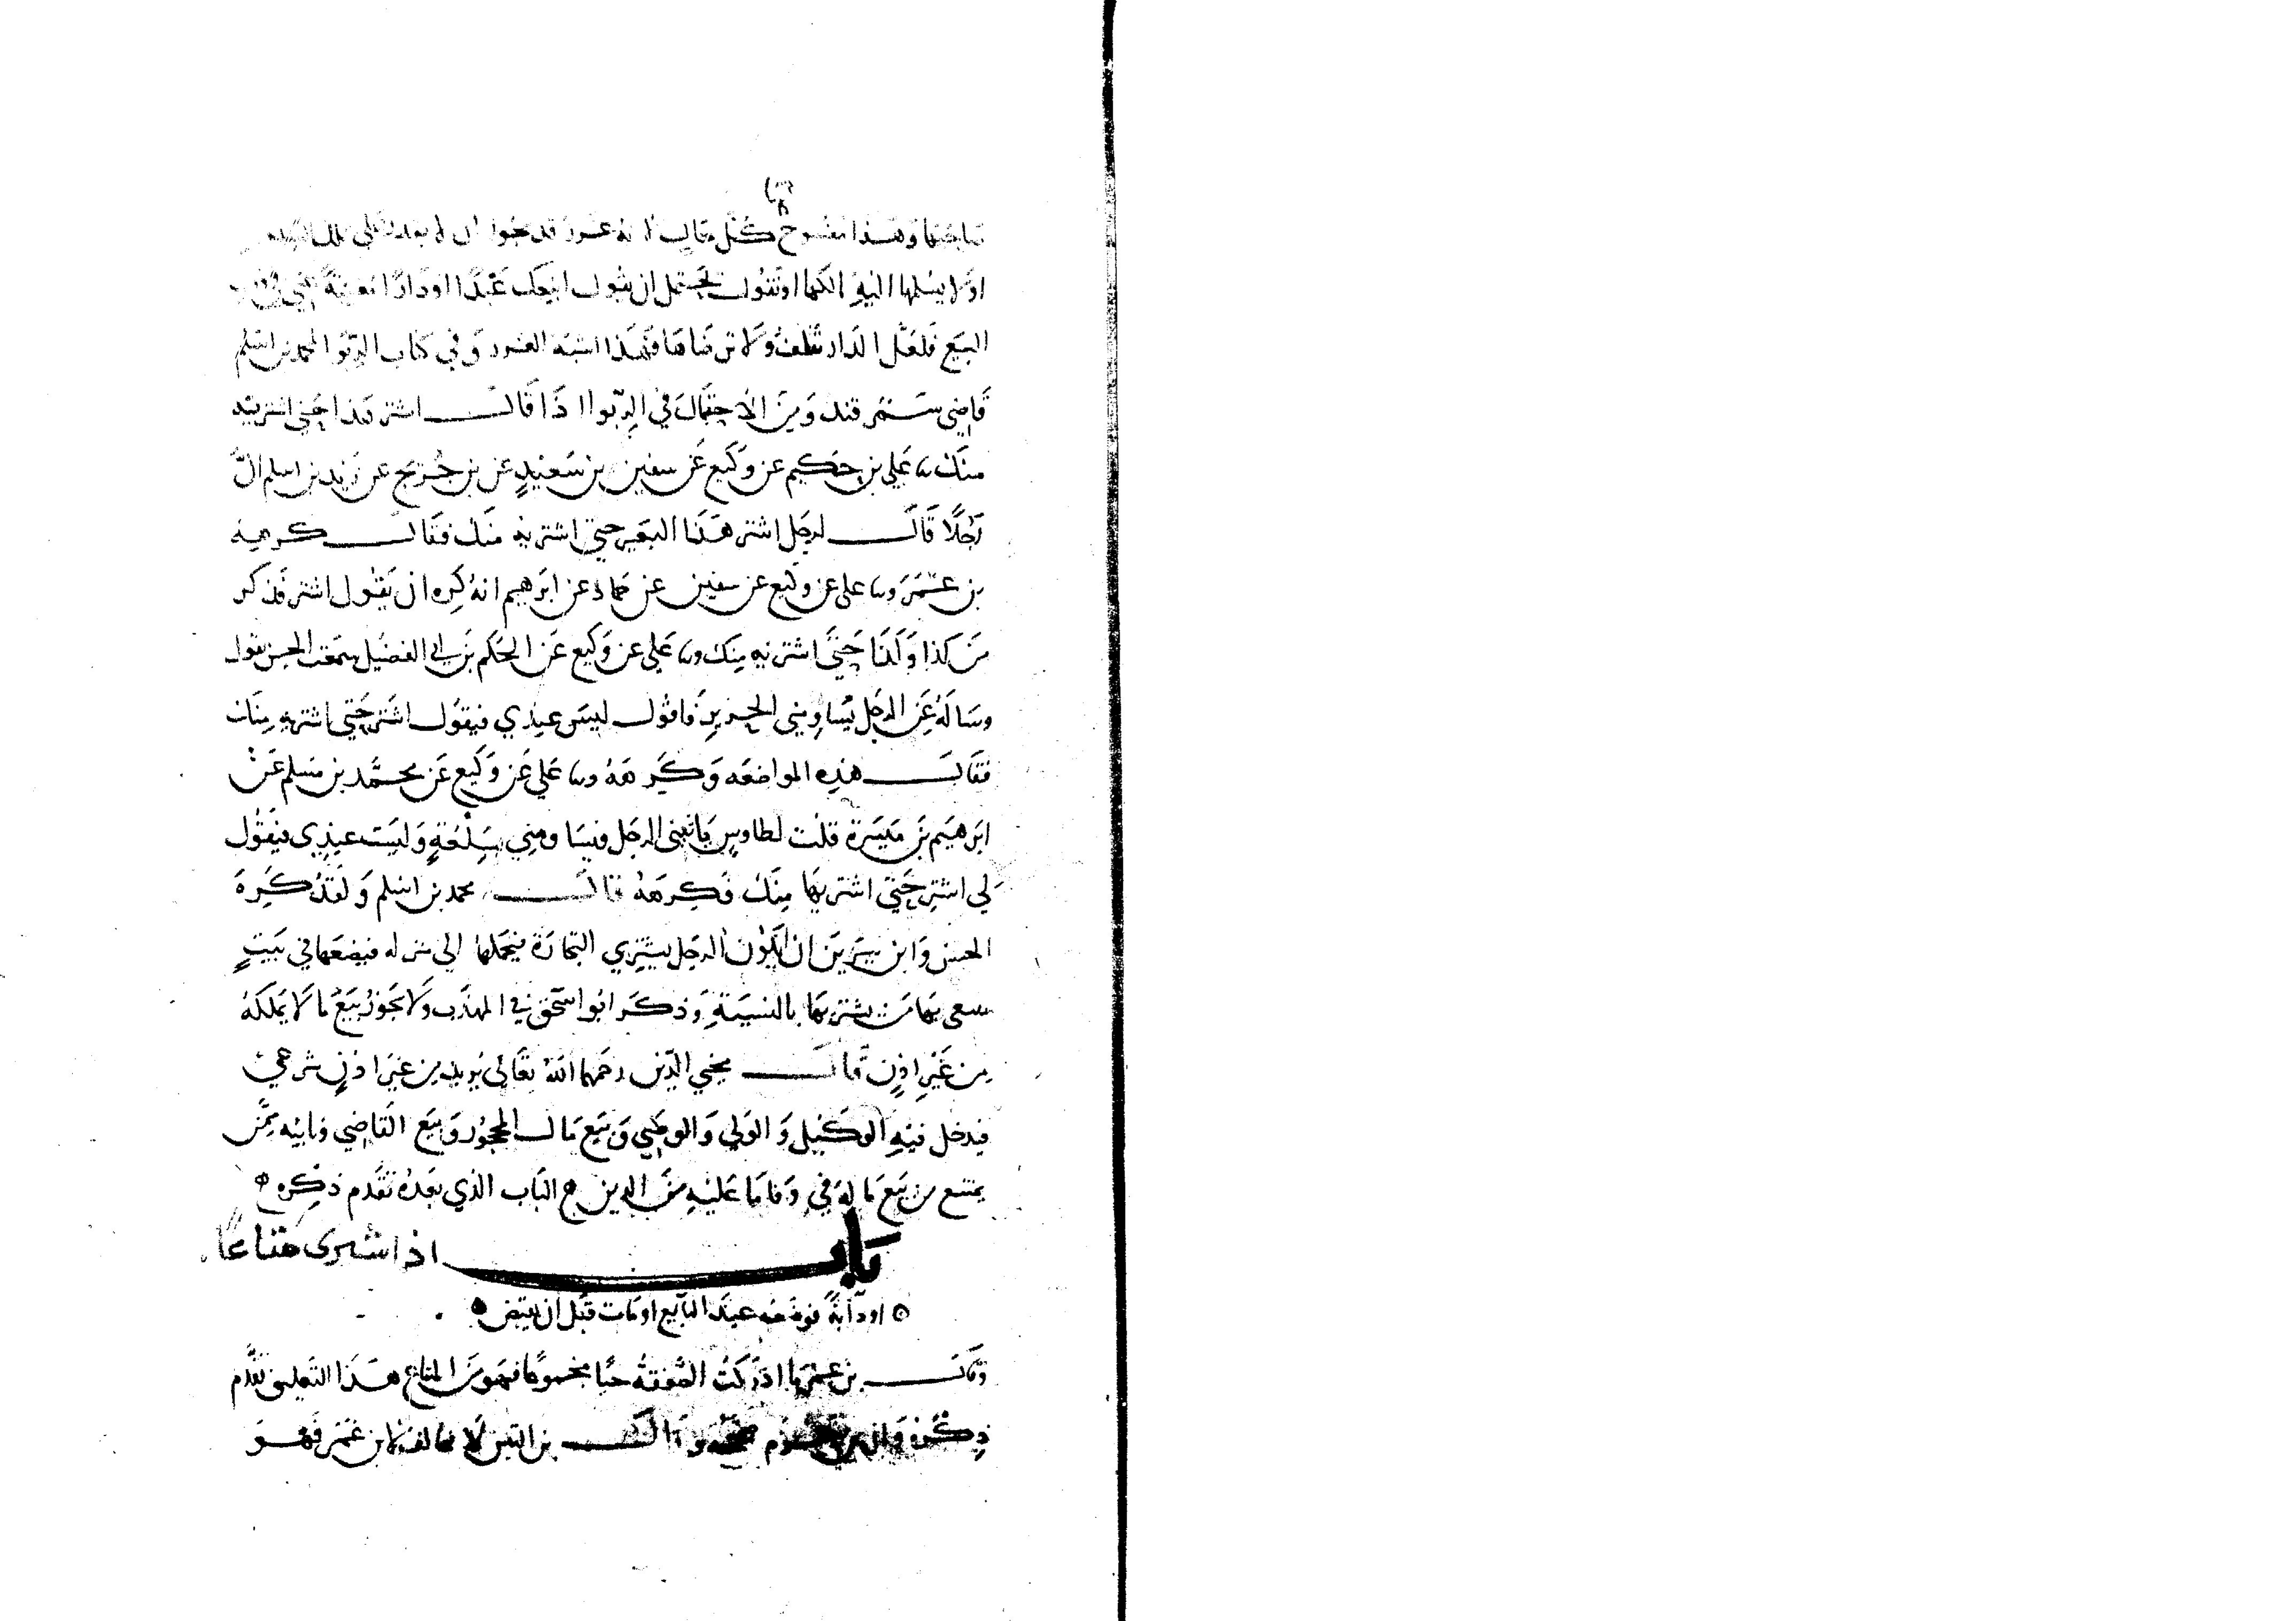 صاحبها وهذا مفسوخ على كل حال لانه غرر قد يجوز ان لا يقدر على تلك السلعة
او لا يسلمها اليه مالكها او نقول يحتمل ان يقول ابيعك عبدا او دارا معينة
البيع فلعل الدار تتلف ولا ترضاها فهذا اشبه الغرر وفي كتاب الربوا لمحمد بن اسلم
قاضي سمرقند ومن الاحتمال في الربوا اذا قال اشتر هذا حتى اشتريه
منك ثنا علي بن حكيم عن وكيع عن سفين بن سعيد عن بن جريج عن زيد بن اسلم ان
رجلا قال لرجل اشتر هذا البعير حتى اشتريه منك فقال كرهه
بن عمر وثنا علي عن وكيع عن سفين عن حماد عن ابرهيم انه كره ان يقول اشتر فذكر
من كذا وكذا حتى اشتريه منك وثنا علي عن وكيع عن الحكم بن ابي الفضيل سمعت الحسن يقول
وساله عن الرجل يساومني الحرير فاقول ليس عندي فيقول اشتر حتى اشتريه منك
فقال هذه المواضعه وكرهه وثنا علي عن وكيع عن محمد بن مسلم عن
ابرهيم بن ميسرة قلت لطاوس ياتيني الرجل فيساومني بسلعة وليست عندي فيقول
لي اشتر حتى اشتريها منك فكرهه قال محمد بن اسلم ولقد كره
الحسن وابن سيرين ان يكون الرجل يشتري التجارة فيحملها الى منزله فيضعها في بيت
يدعى بها من يشتريها بالنسية وذكر ابو اسحق في المهذب ولا يجوز بيع ما لا يملكه
من غير اذن قال محيي الدين رحمهما الله تعالى يريد من غير اذن شرعي
فيدخل فيه الوكيل والولي والوصي وبيع مال المحجور وبيع القاضي ونايبه ممن
يمتنع من بيع ماله في وفا ما عليه من الدين ح الباب الذي بعده تقدم ذكره
باب اذا اشترى متاعا
او دابة فوضعه عند البايع او مات قبل ان يقبض
وقال بن عمر ما ادركت الصفقة حيا مجموعا فهو من المتاع هذا التعليق تقدم
ذكره قال بن التين لا مخالف لابن عمر فهو